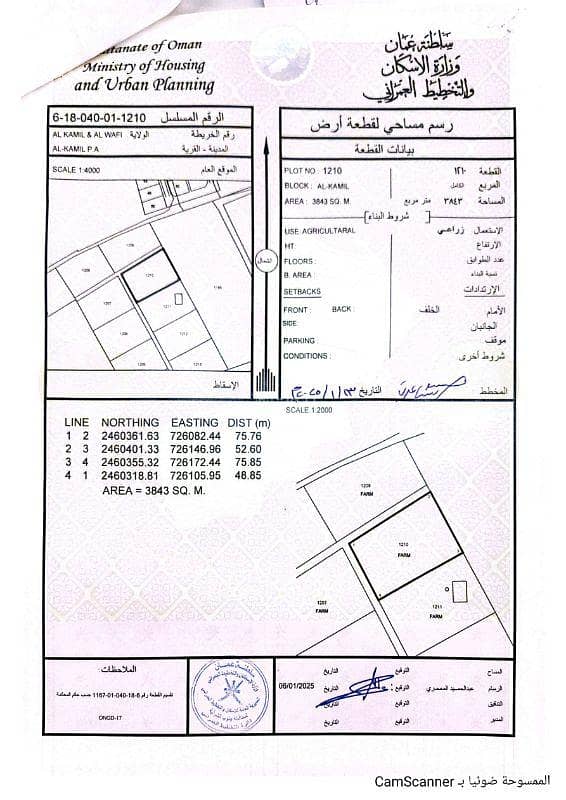 Sultanate of Oman
Ministry of Housing
and Urban Planning
سلطنة عمان
وزارة الإسكان
والتخطيط العمراني
6-18-040-01-1210 الرقم المسلسل
AL KAMIL & AL WAFI الولاية رقم الخريطة
AL-KAMIL P.A المدينة - القرية
SCALE 1:4000 الموقع العام
1210
الإسقاط
الشمال
رسم مساحي لقطعة أرض
بيانات القطعة
PLOT NO : 1210 القطعة ١٢١٠
BLOCK : AL-KAMIL المربع الكامل
AREA : 3843 SQ. M. المساحة ٣٨٤٣ متر مربع
شروط البناء
USE: AGRICULTARAL الإستعمال زراعي
HT: الإرتفاع
FLOORS : عدد الطوابق
B. AREA : نسبة البناء
SETBACKS الإرتدادات
FRONT : BACK : الخلف الأمام
SIDE: الجانبان
PARKING : موقف
CONDITIONS : شروط أخرى
المخطط التاريخ
SCALE 1:2000
LINE NORTHING EASTING DIST (m)
1 2 2460361.63 726082.44 75.76
2 3 2460401.33 726146.96 52.60
3 4 2460355.32 726172.44 75.85
4 1 2460318.81 726105.95 48.85
AREA = 3843 SQ. M.
1209
FARM
1210
FARM
1207
FARM
1211
FARM
الملاحظات:
تقسيم القطعة رقم 6-18-040-01-1167 حسب حكم المحكمة
ONGD-17
المساح التوقيع التاريخ
الرسام عبدالحميد المعمري التوقيع التاريخ 06/01/2025
التدقيق التوقيع التاريخ
المدير التوقيع التاريخ
الممسوحة ضوئيا بـ CamScanner